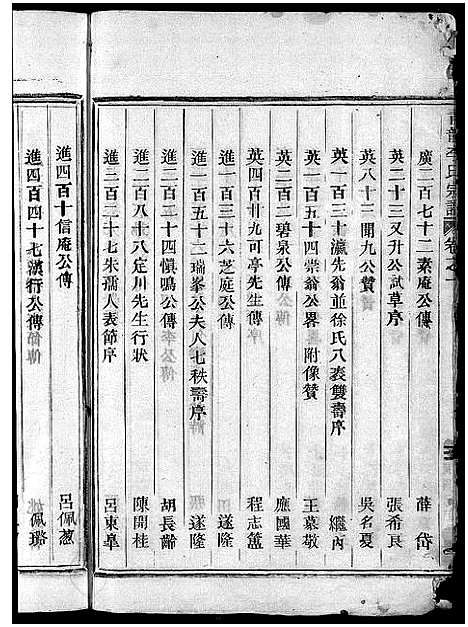 李氏宗譜 卷之一
廣二百七十二素庵公傳 薛岱
英二十三又升公試草序 張希良
英八十三開九公贊 吳名夏
英一百三十瀛先翁並徐氏八袠雙壽序 繼內
英一百五十四崇翁公畧 附像贊 王慕敬
英二百二碧泉公傳 應國華
英四百廿九可亭先生傳 程志簠
進一百三十六芝庭公傳 遂隆
進一百五十二瑞峯公夫人七秩壽序 遂隆
進二百二十四愼鳴公傳 胡長齡
進二百八十八定川先生行狀 陳開桂
進三百二十七朱孺人表節序 呂東皐
進四百十信庵公傳 呂佩葱
進四百四十七漢行公傳 姚佩璐